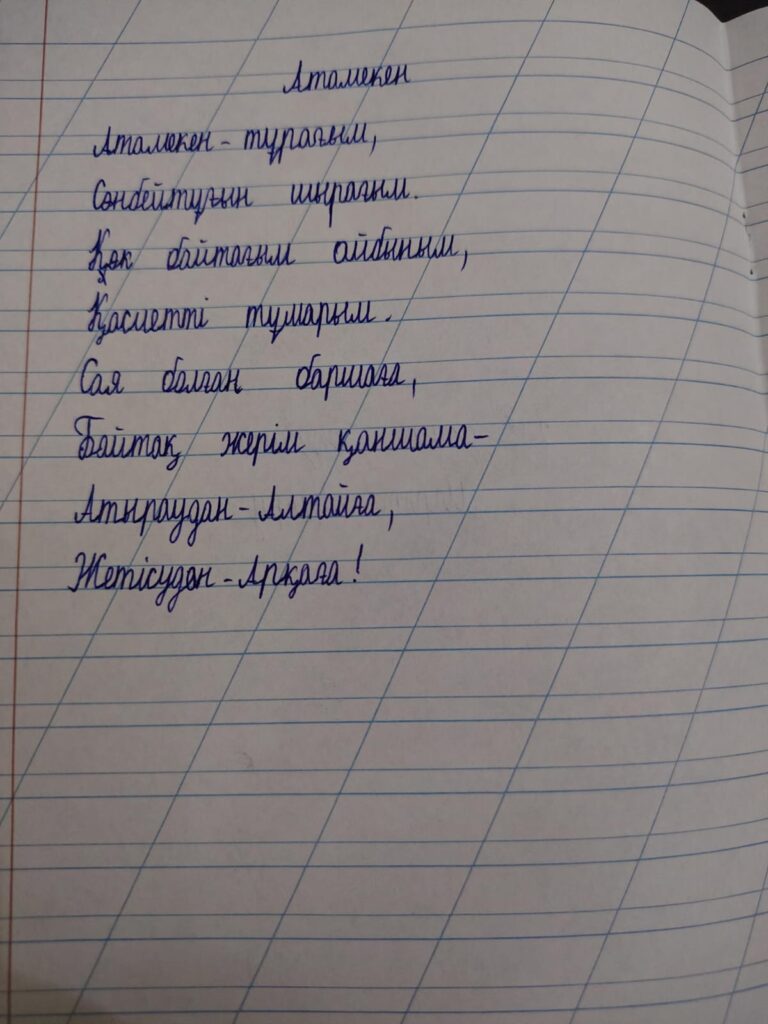 Атамекен
Атамекен - тұрағым,
Сөнбейтұғын шырағым.
Көк байтағым айбыным,
Қасиетті тұмарым.
Сая болған баршаға,
Байтақ жерім қаншама-
Атыраудан - Алтайға,
Жетісудан - Арқаға!